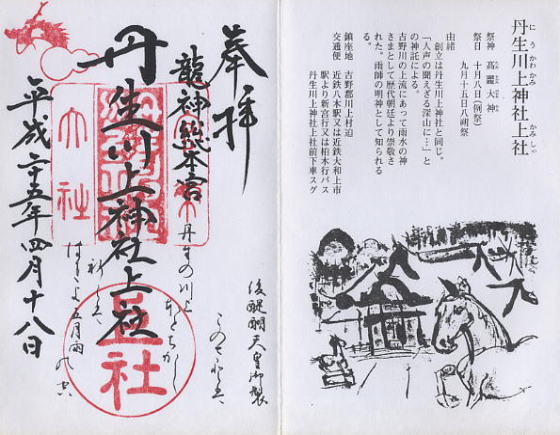 にうかわかみ かみしゃ
丹生川上神社上社
祭神 高龗大神
祭日 十月八日(例祭)
九月十五日八朔祭
由緒
創立は丹生川上神社と同じ。
「人声の聞えざる深山に…」と
の神託による。
吉野川の上流にあって雨水の神
さまとして歴代朝廷より崇敬さ
れた。雨師の明神として知られ
る。
鎮座地 吉野郡川上村迫
交通便 近鉄八木駅又は近鉄大和上市
駅より新宮行又は柏木行バス
丹生川上神社上社前下車スグ
後醍醐天皇御製
このさとは
丹生の川上
ほどちかし
祈らば
はれよ五月雨の空
奉拝
龍神総本宮
丹生川上神社上社
上社
平成二十五年四月十八日